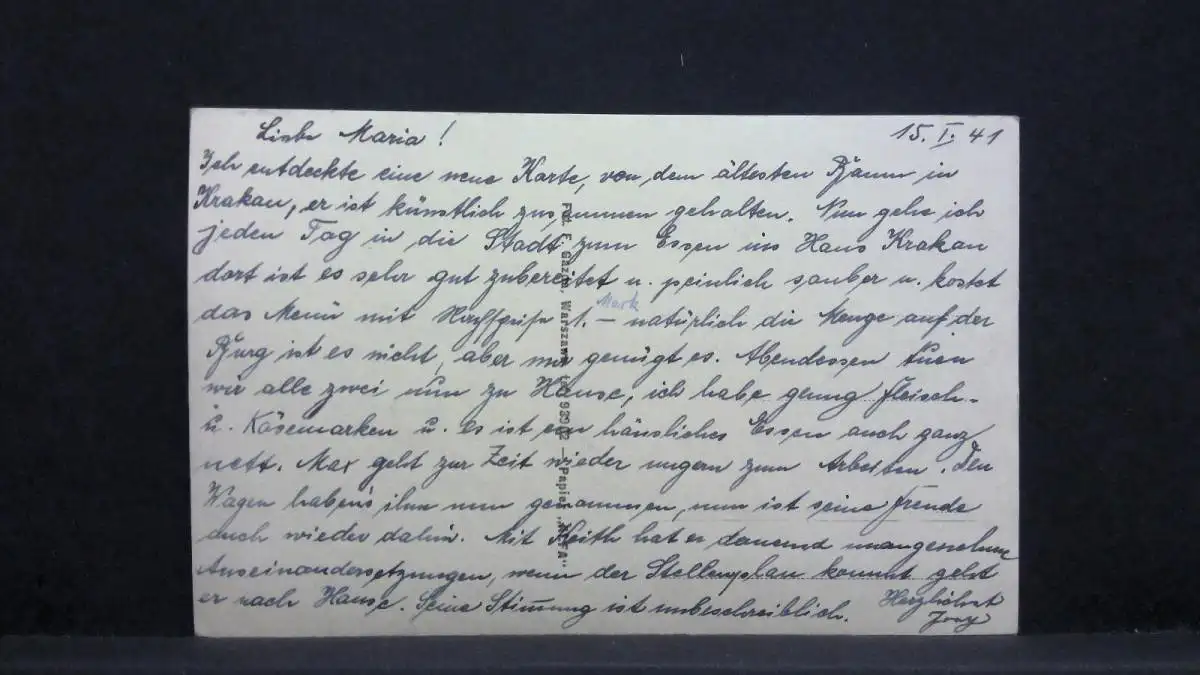 Liebe Maria! 15. I. 41
Ich entdeckte eine neue Karte, von dem ältesten Baum in
Krakau, er ist künstlich zusammen gehalten. Nun gehe ich
jeden Tag in die Stadt zum Essen ins Haus Krakau
dort ist es sehr gut zubereitet u. peinlich sauber u. kostet
das Menü mit 1.– Mark natürlich die Menge auf der
Burg ist es nicht, aber mir genügt es. Abendessen tuen
wir alle zwei nun zu Hause, ich habe genug Fleisch-
u. Käsemarken u. es ist ein häusliches Essen auch ganz
nett. Max geht zur Zeit wieder ungern zum Arbeiten. Den
Wagen haben's ihm nun genommen, nun ist seine Freude
auch wieder dahin. Mit hat er dauernd unangenehme
Auseinandersetzungen, wenn der Stellenplan kommt geht
er nach Hause. Seine Stimmung ist unbeschreiblich. Herzlichst
Fot. Warszawa Papier „ALFA"